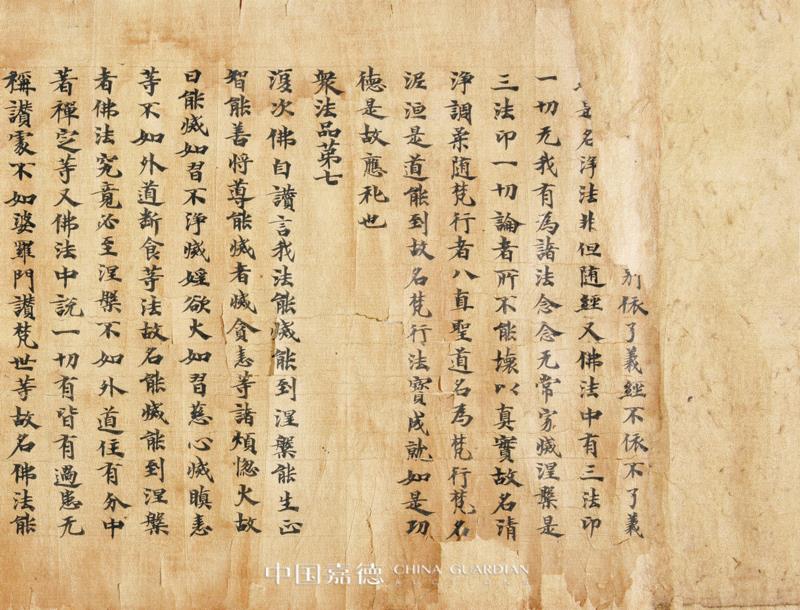 別依了義經不依不了義
是名淨法非但随經又佛法中有三法印
一切无我有為諸法念念无常寂滅涅槃是
三法印一切論者所不能壞以真實故名清
淨調柔随梵行者八直聖道名為梵行梵名
泥洹是道能到故名梵行法寶成就如是功
德是故應礼也
衆法品第七
復次佛自讃言我法能滅能到涅槃能生正
智能善將尊能滅者滅貪恚等諸煩惱火故
曰能滅如習不淨滅婬欲火如習慈心滅瞋恚
等不如外道断食等法故名能滅能到涅槃
者佛法究竟必至涅槃不如外道住有分中
著禪定等又佛法中說一切有皆有過患无
稱讃處不如婆羅門讃梵世等故名佛法能
中国嘉德 CHINA GUARDIAN